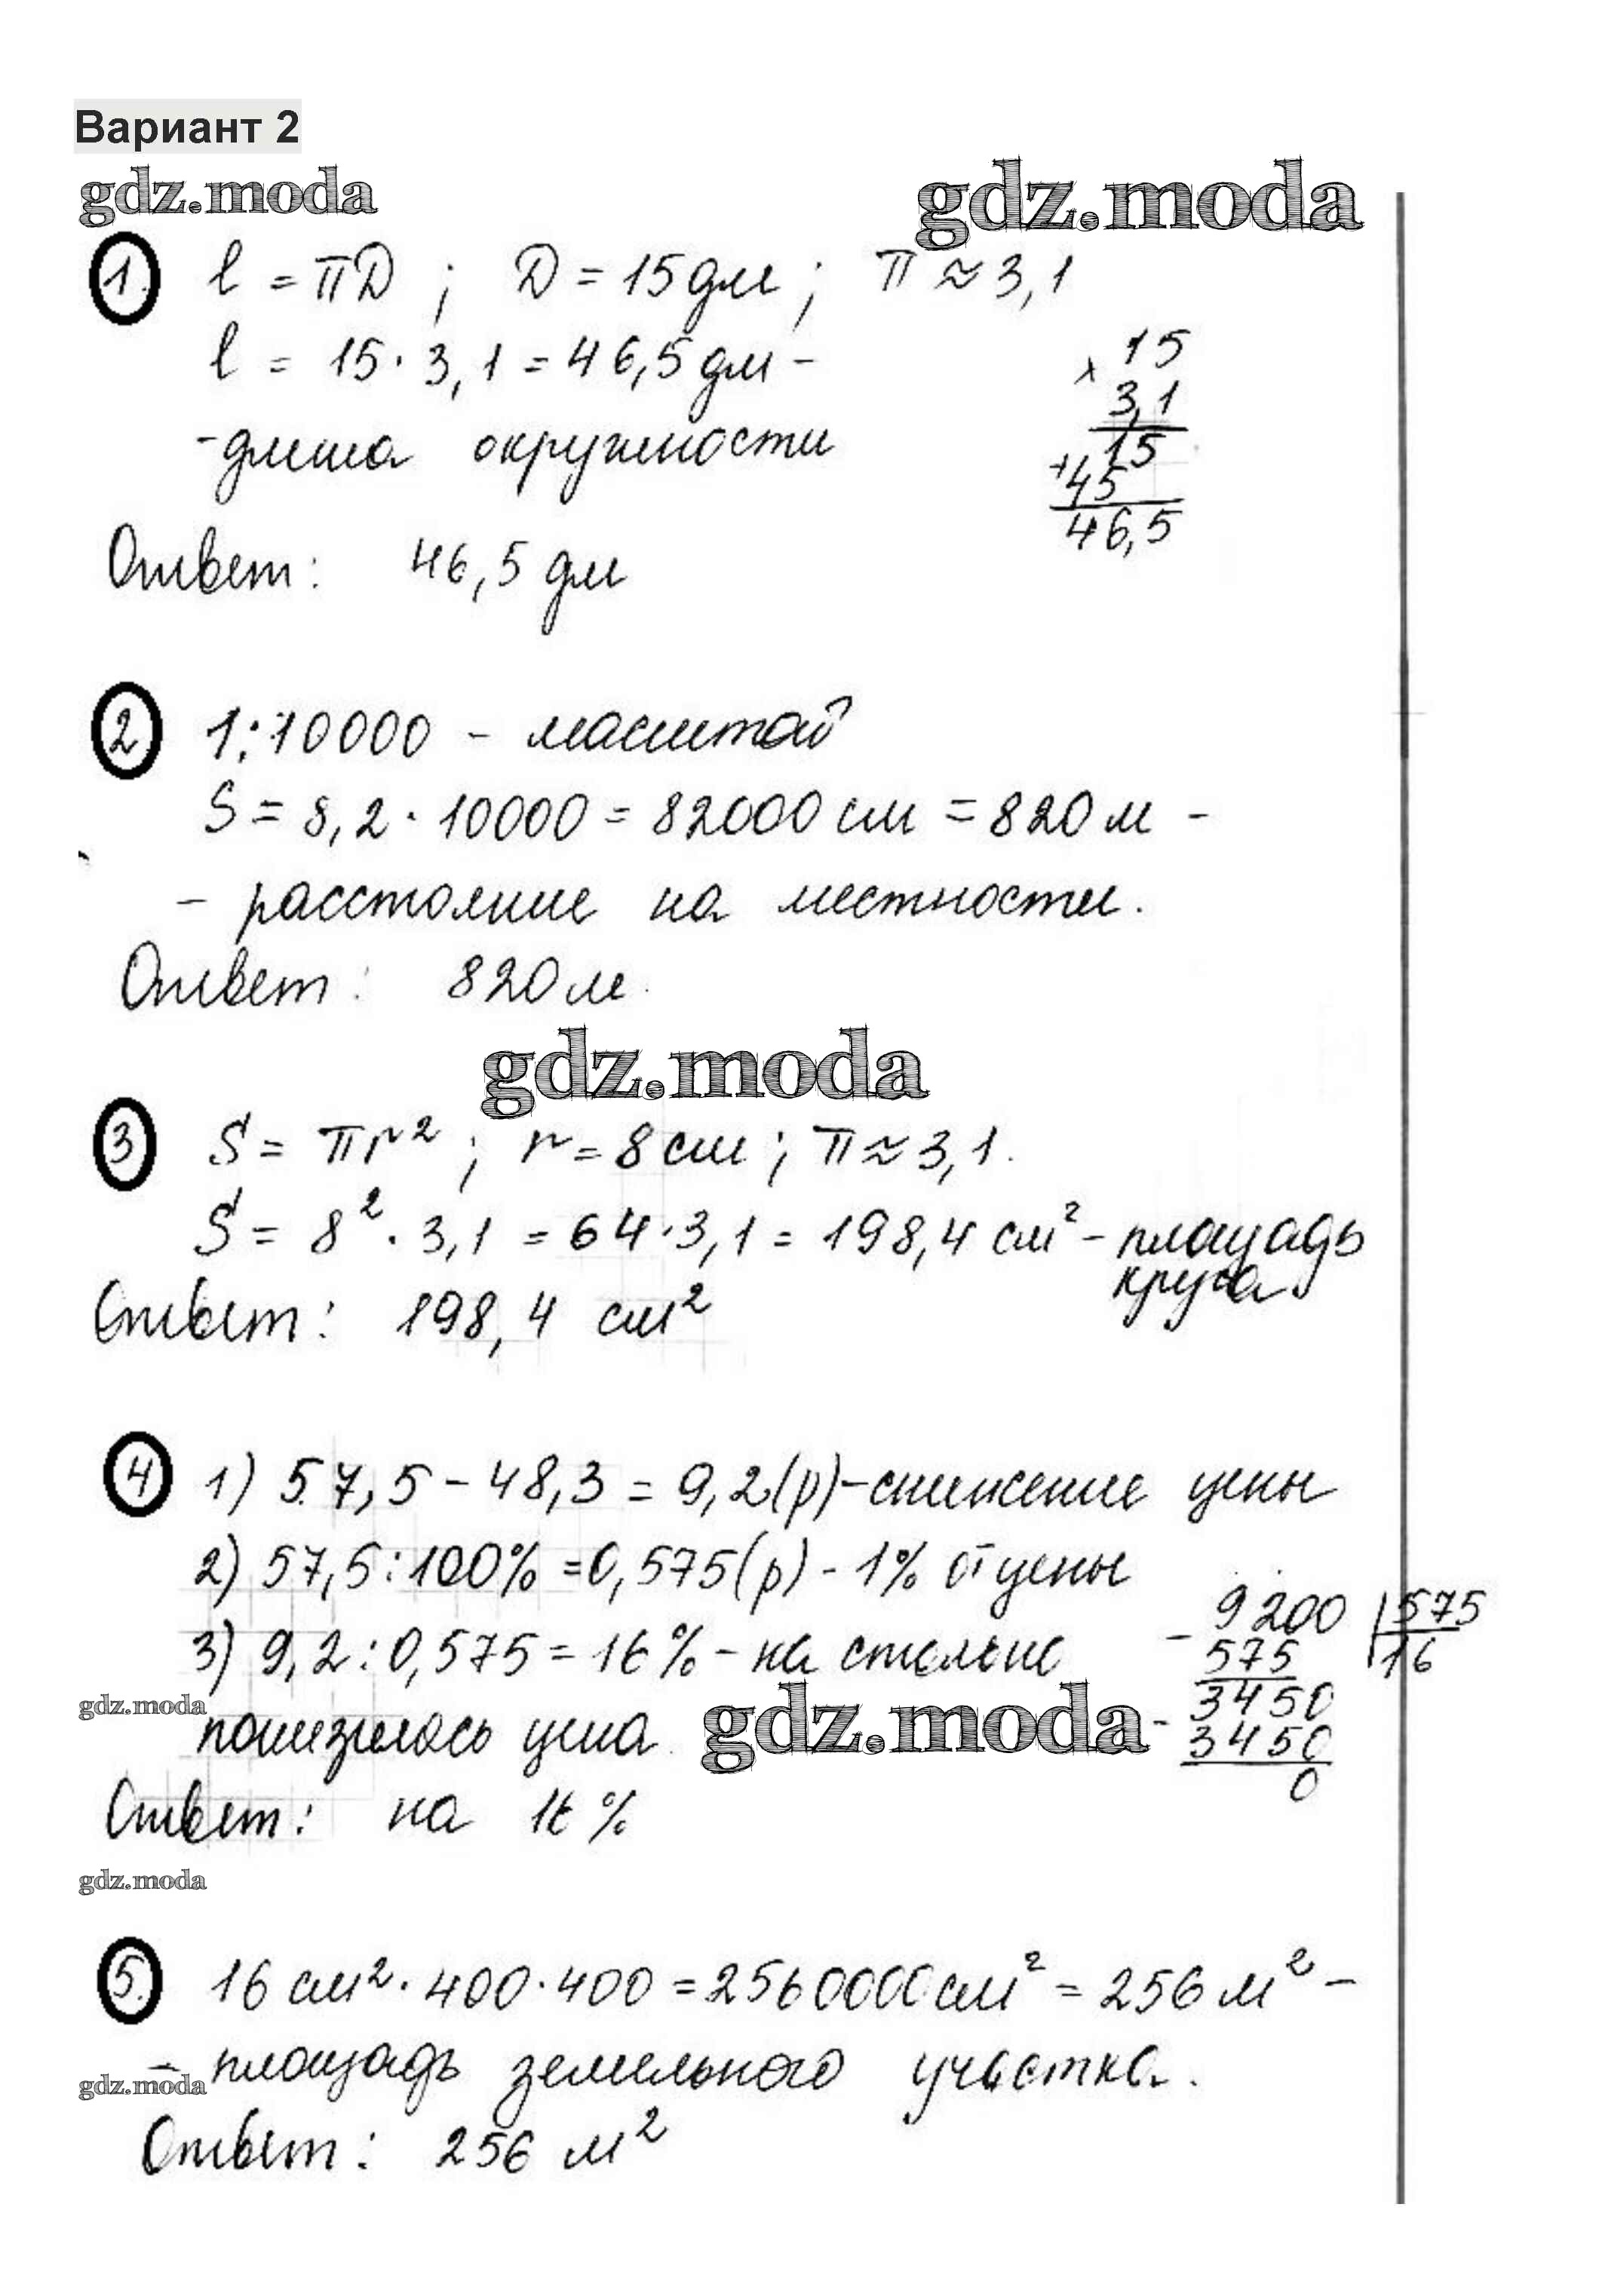 Вариант 2
gdz.moda gdz.moda
1. l = πD ; D = 15 дм ; π ≈ 3,1
l = 15 · 3,1 = 46,5 дм -
- длина окружности
× 15
3,1
15
+ 45
46,5
Ответ: 46,5 дм
2 1:10000 - масштаб
S = 8,2 · 10000 = 82000 см = 820 м -
- расстояние на местности.
Ответ: 820 м.
gdz.moda
3 S = πr² ; r = 8 см ; π ≈ 3,1.
S = 8² · 3,1 = 64 · 3,1 = 198,4 см² - площадь
круга.
Ответ: 198,4 см²
4 1) 57,5 - 48,3 = 9,2 (р) - снижение цены
2) 57,5 : 100% = 0,575 (р) - 1% от цены
3) 9,2 : 0,575 = 16% - на столько
gdz.moda понизилась цена. gdz.moda
- 9200 | 575
575 16
3450
- 3450
0
Ответ: на 16 %
gdz.moda
5. 16 см² · 400 · 400 = 2560000 см² = 256 м² -
gdz.moda - площадь земельного участка.
Ответ: 256 м²